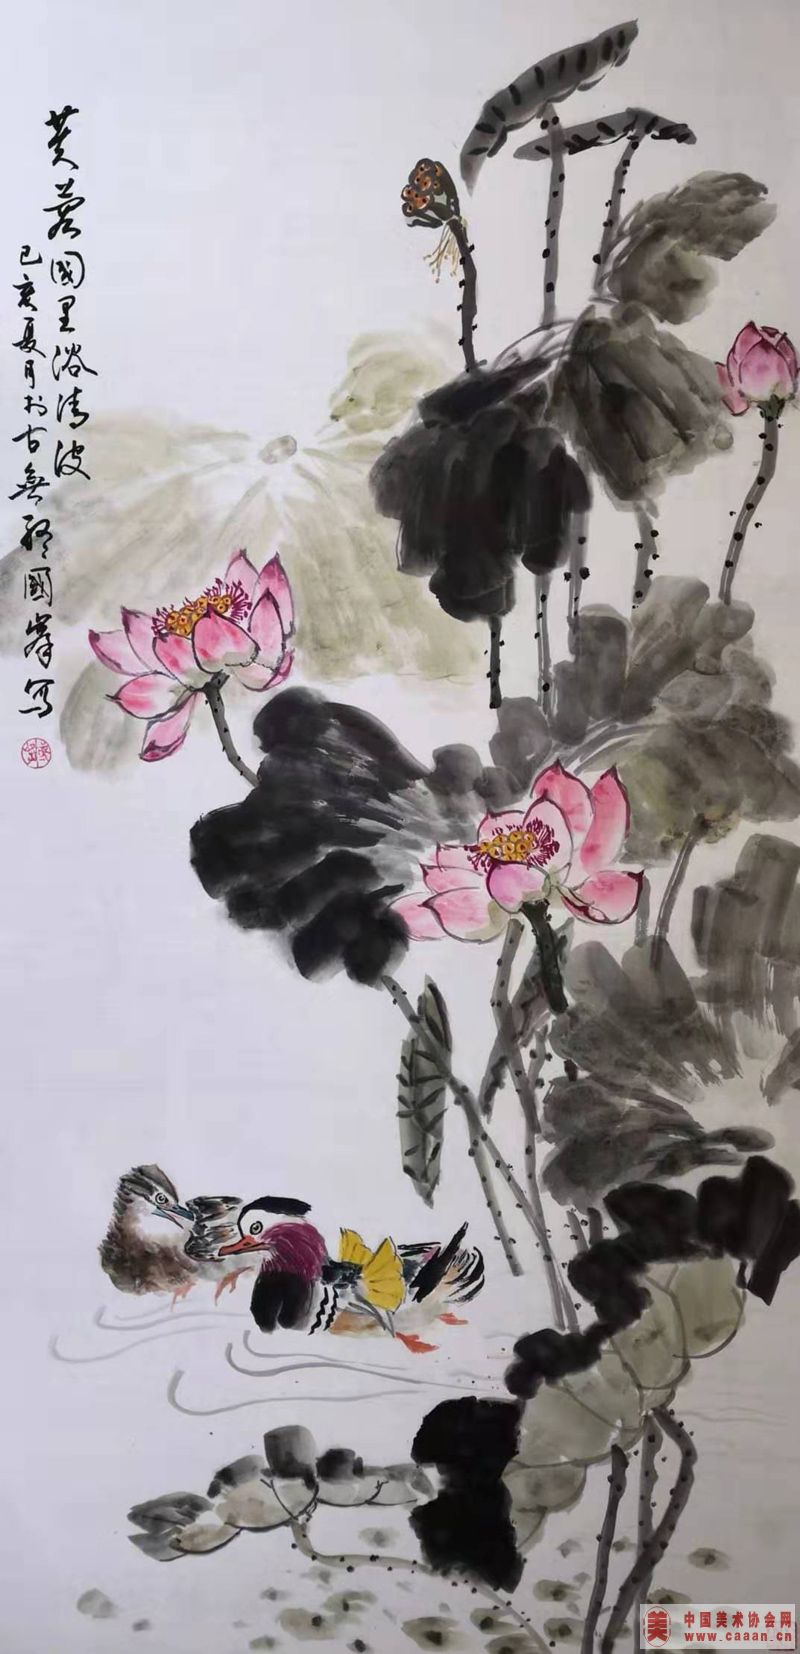 芙蓉國里浴清波
己亥夏月於古無國峰写
美
中国美术协会网
www.caaan.cn